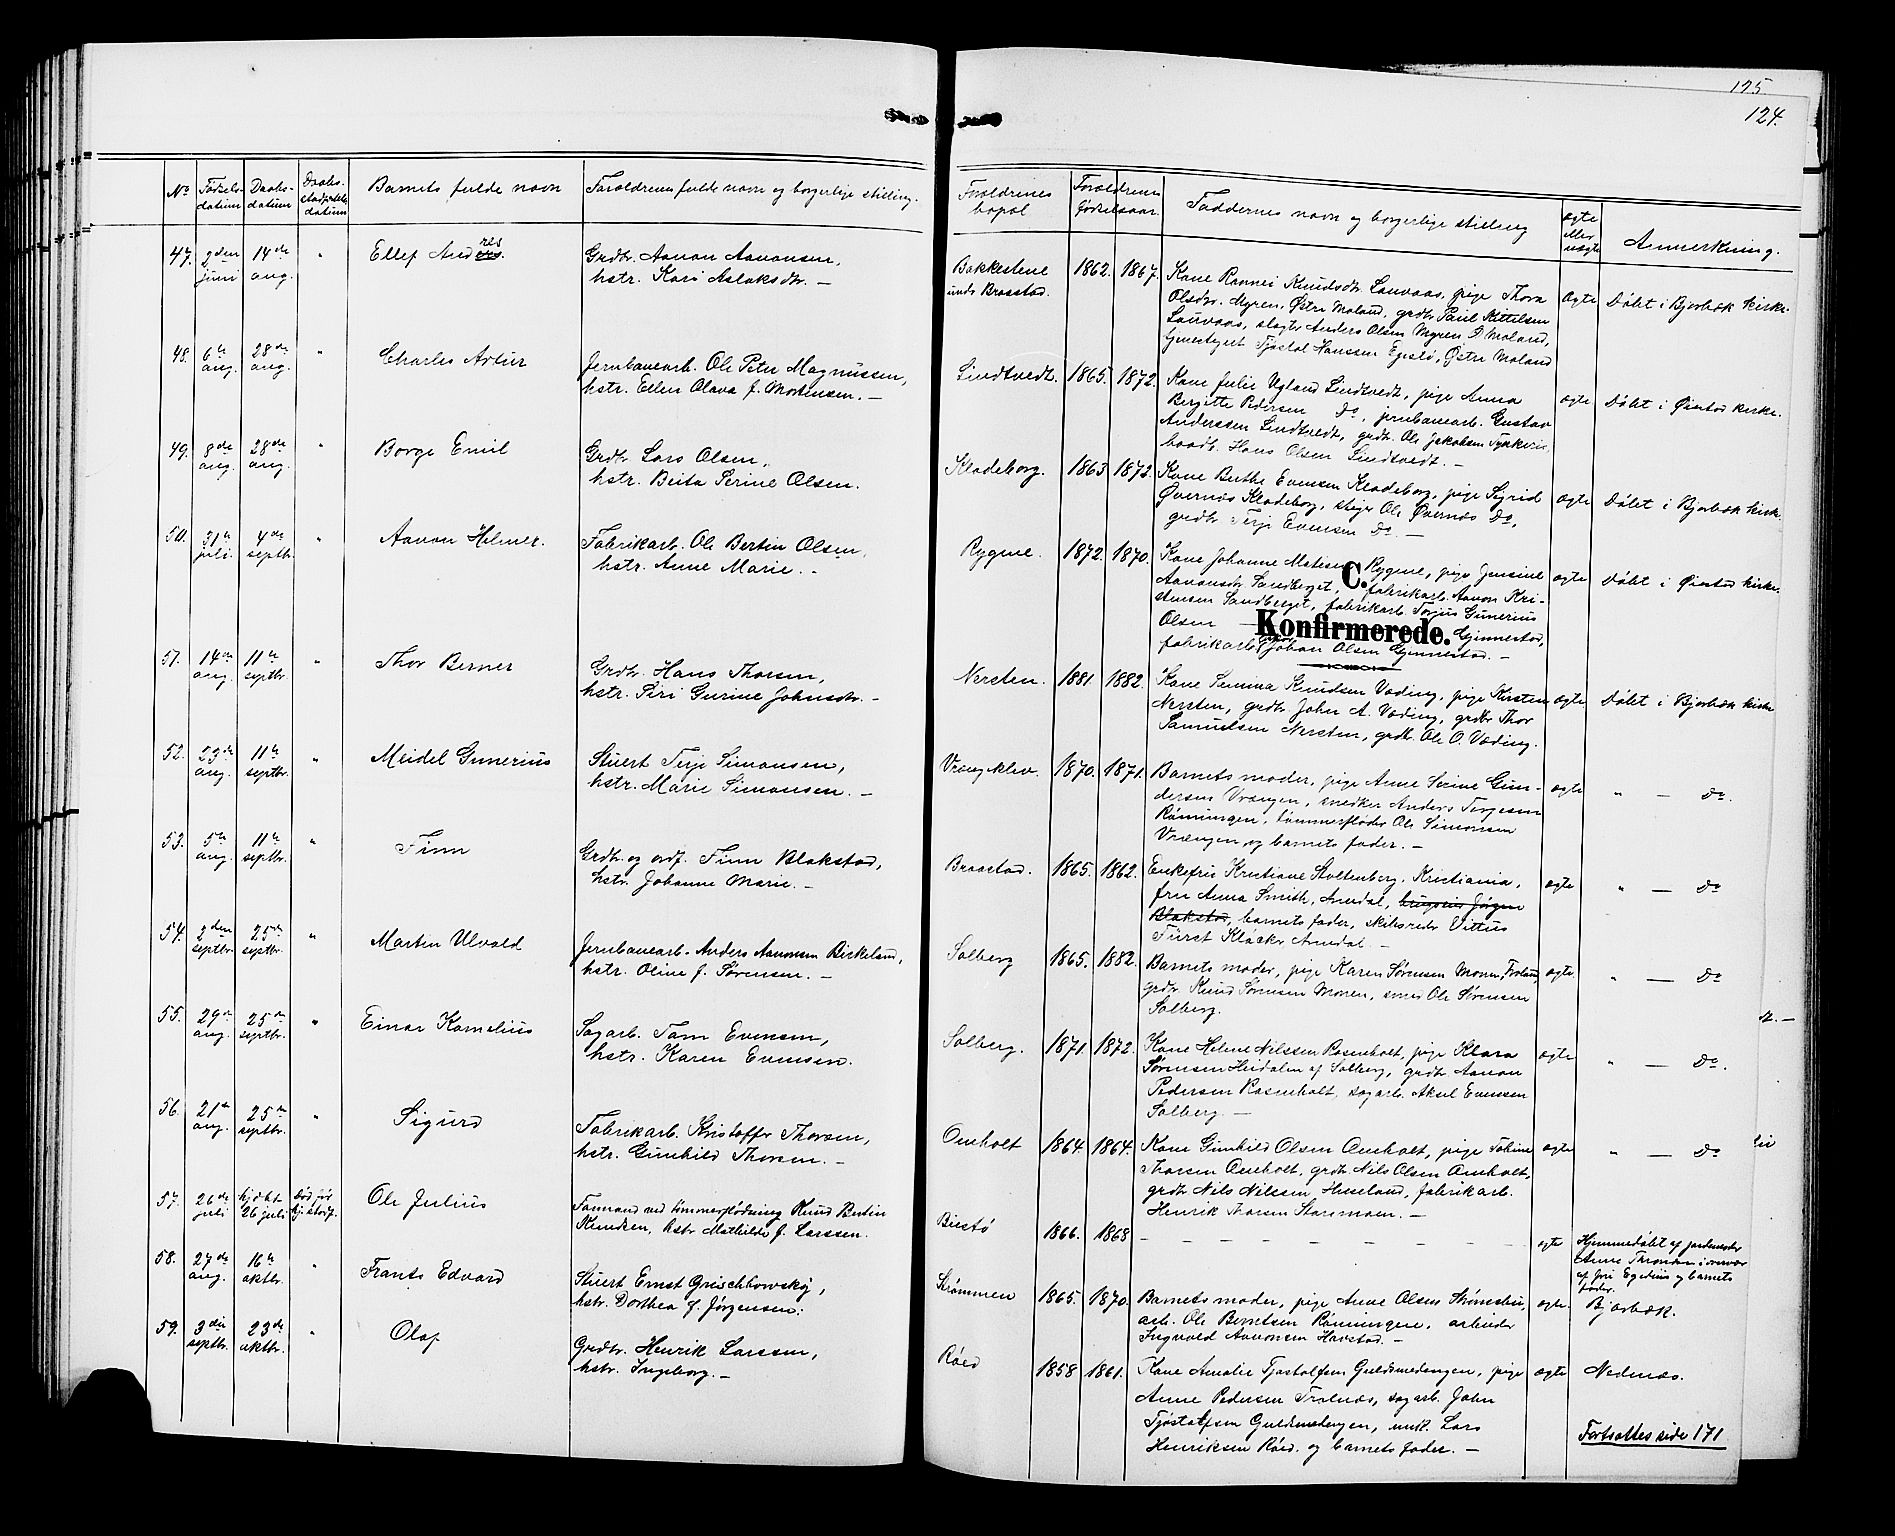 125
124.
No Fødsels-datum Daabs-datum Daabs-stadfæstelse datum Barnets fulde navn Forældrenes fulde navn og borgerlige stilling. Forældrenes bopæl Forældrenes fødselsaar. Faddernes navn og borgerlige stilling ægte eller uægte Anmerkning.
47. 2den juni 14de aug. " Ellef Andres. Grdbr. Aanon Aanonsen,
hstr. Kari Aslaksdtr. —
Bakkestene
under Braastad. 1862. 1867. Kone Ronnei Knudsdtr. Lauvaas, pige Thora
Olsdtr. Myren, Østre Moland, grdbr. Paul Kittelsen
Lauvaas, slagter Anders Olsen Myren Ø Moland,
tjenestegut Tjøstol Hanssen Egeslø, Østre Moland
ægte Døbt i Bjorbæk kirke.
48. 6te aug. 28de aug. " Charles Artur Jernbanearb. Ole Peter Magnussen,
hstr. Ellen Olava f. Mortensen. —
Lindtvedt. 1865. 1872. Kone Julie Ugland Lindtvedt, pige Anna
Bergitte Pedersen Do, jernbanearb. Gustav
Anderssen Lindtvedt, grdbr. Ole Jakobsen
baadb. Hans Olsen Lindtvedt. —
ægte Døbt i Øiestad kirke.
49. 8de aug. 28de aug. " Borge Emil Grdbr. Lars Olsen,
hstr. Beita Serine Olsen.
Klodeborg. 1863 1872. Kone Berthe Evensen Klodeborg, pige Sigrid
Øvernes Klodeborg, stiger Ole Øvernes Do,
grdbr. Terje Evensen Do. —
ægte Døbt i Bjorbæk kirke.
50. 31te juli. 4de septbr. " Aanon Helmer. Fabrikarb. Ole Bertin Olsen,
hstr. Anne Marie. —
Rygene. 1872. 1870. Kone Johanne Rygene, pige Jensine
Aanonsdtr Sandberget, fabrikarb. Aanon Kri-
stensen Sandberget, fabrikarb. Torjus Gunerius
Olsen — Gjennestad,
fabrikarb. Johan Olsen Gjennestad. —
ægte Døbt i Øiestad kirke.
C.
Konfirmerede.
51. 14de aug. 11te septbr. " Thor Berner Grdbr. Hans Thorsen,
hstr. Siri Gurine Johnsdtr. —
Nersten. 1881. 1882. Kone Semina Knudsen Væding, pige Kirsten
Nersten, grdbr. John A. Væding, grdbr Thor
Samuelsen Nersten, grdbr. Ole O. Væding.
ægte Døbt i Bjorbæk kirke
52. 23de aug. 11te septbr. " Meidel Gunerius Stuert Terje Simonsen,
hstr. Marie Simonsen. —
Vrængklev. 1870. 1871. Barnets moder, pige Anne Serine Gun-
dersen Vrængen, snedker Anders Tergesen
Rønningen, tømmerfløder Ole Simonsen
Vrængen og barnets fader. —
ægte " — Do.
53. 5te aug. 11te septbr. " Finn Grdbr. og ordf. Finn Blakstad,
hstr. Johanne Marie. —
Braastad. 1865. 1862. Enkefru Kristiane Stoltenberg, Kristiania,
frk Anna Smith, Arendal, Jørgen
Blakstad, barnets fader, skibsreder Vittus
Fürst Kløcker Arendal —
ægte " — Do
54. 2den septbr. 25de septbr. " Martin Ulvald Jernbanearb. Anders Aanonsen Birkeland,
hstr. Oline f. Sørensen. —
Solberg 1865. 1882. Barnets moder, pige Karen Sørensen Monen, Froland,
grdbr. Knud Sørensen Monen, smed Ole Sørensen
Solberg.
ægte " — Do
55. 29de aug. 25de septbr. " Einar Kornelius Sagarb. Tom Evensen,
hstr. Karen Evensen.
Solberg. 1871. 1872. Kone Helene Nilssen Rosenholt, pige Klara
Sørensen Heidalen af Solberg, grdbr Aanon
Pedersen Rosenholt, sagarb. Aksel Evensen
Solberg. —
ægte " — Do.
56. 21de aug. 25de septbr. " Sigurd Fabrikarb. Kristoffer Thorsen,
hstr. Gunhild Thorsen. —
Omholt 1864. 1864. Kone Gunhild Olsen Omholt, pige Tobine
Thorsen Omholt, grdbr. Nils Olsen Omholt,
grdbr Nils Nilssen Huseland, fabrikarb.
Henrik Thorsen Staremoen. —
ægte " — Do
57. 26de juli hjdbt. 26 juli Død før stadf. Ole Julius Formand ved tømmerflødning Knud Bertin
Knudsen, hstr. Mathilde f. Larssen.
Biestø 1866. 1868 — — — ægte Hjemmedøbt af jordemoder
Anne Thronsen i overvær
af frk Egelius og barnets
fader.
58. 27de aug. 16te oktbr. " Frants Edvard Stuert Ernst Grischkowskÿ,
hstr. Dorthea f. Jørgensen.
Strømmen 1865. 1870. Barnets moder, pige Anne Olsen Strømsbu,
arb. Ole Berntsen Rønningene, arbeider
Ingvald Aanonsen Havstad. —
ægte. Bjorbæk.
59. 3die septbr. 23de oktbr. " Olaf Grdbr. Henrik Larssen,
hstr. Ingeborg. —
Røed 1858 1861. Kone Amalie Tjøstolfsen Guldsmedengen, pige
Anne Pedersen Trolnæs, sagarb. John
Tjøstolfsen Guldsmedengen, unk. Lars
Henriksen Røed. og barnets fader. —
ægte Nedenæs.
Fortsættes side 171